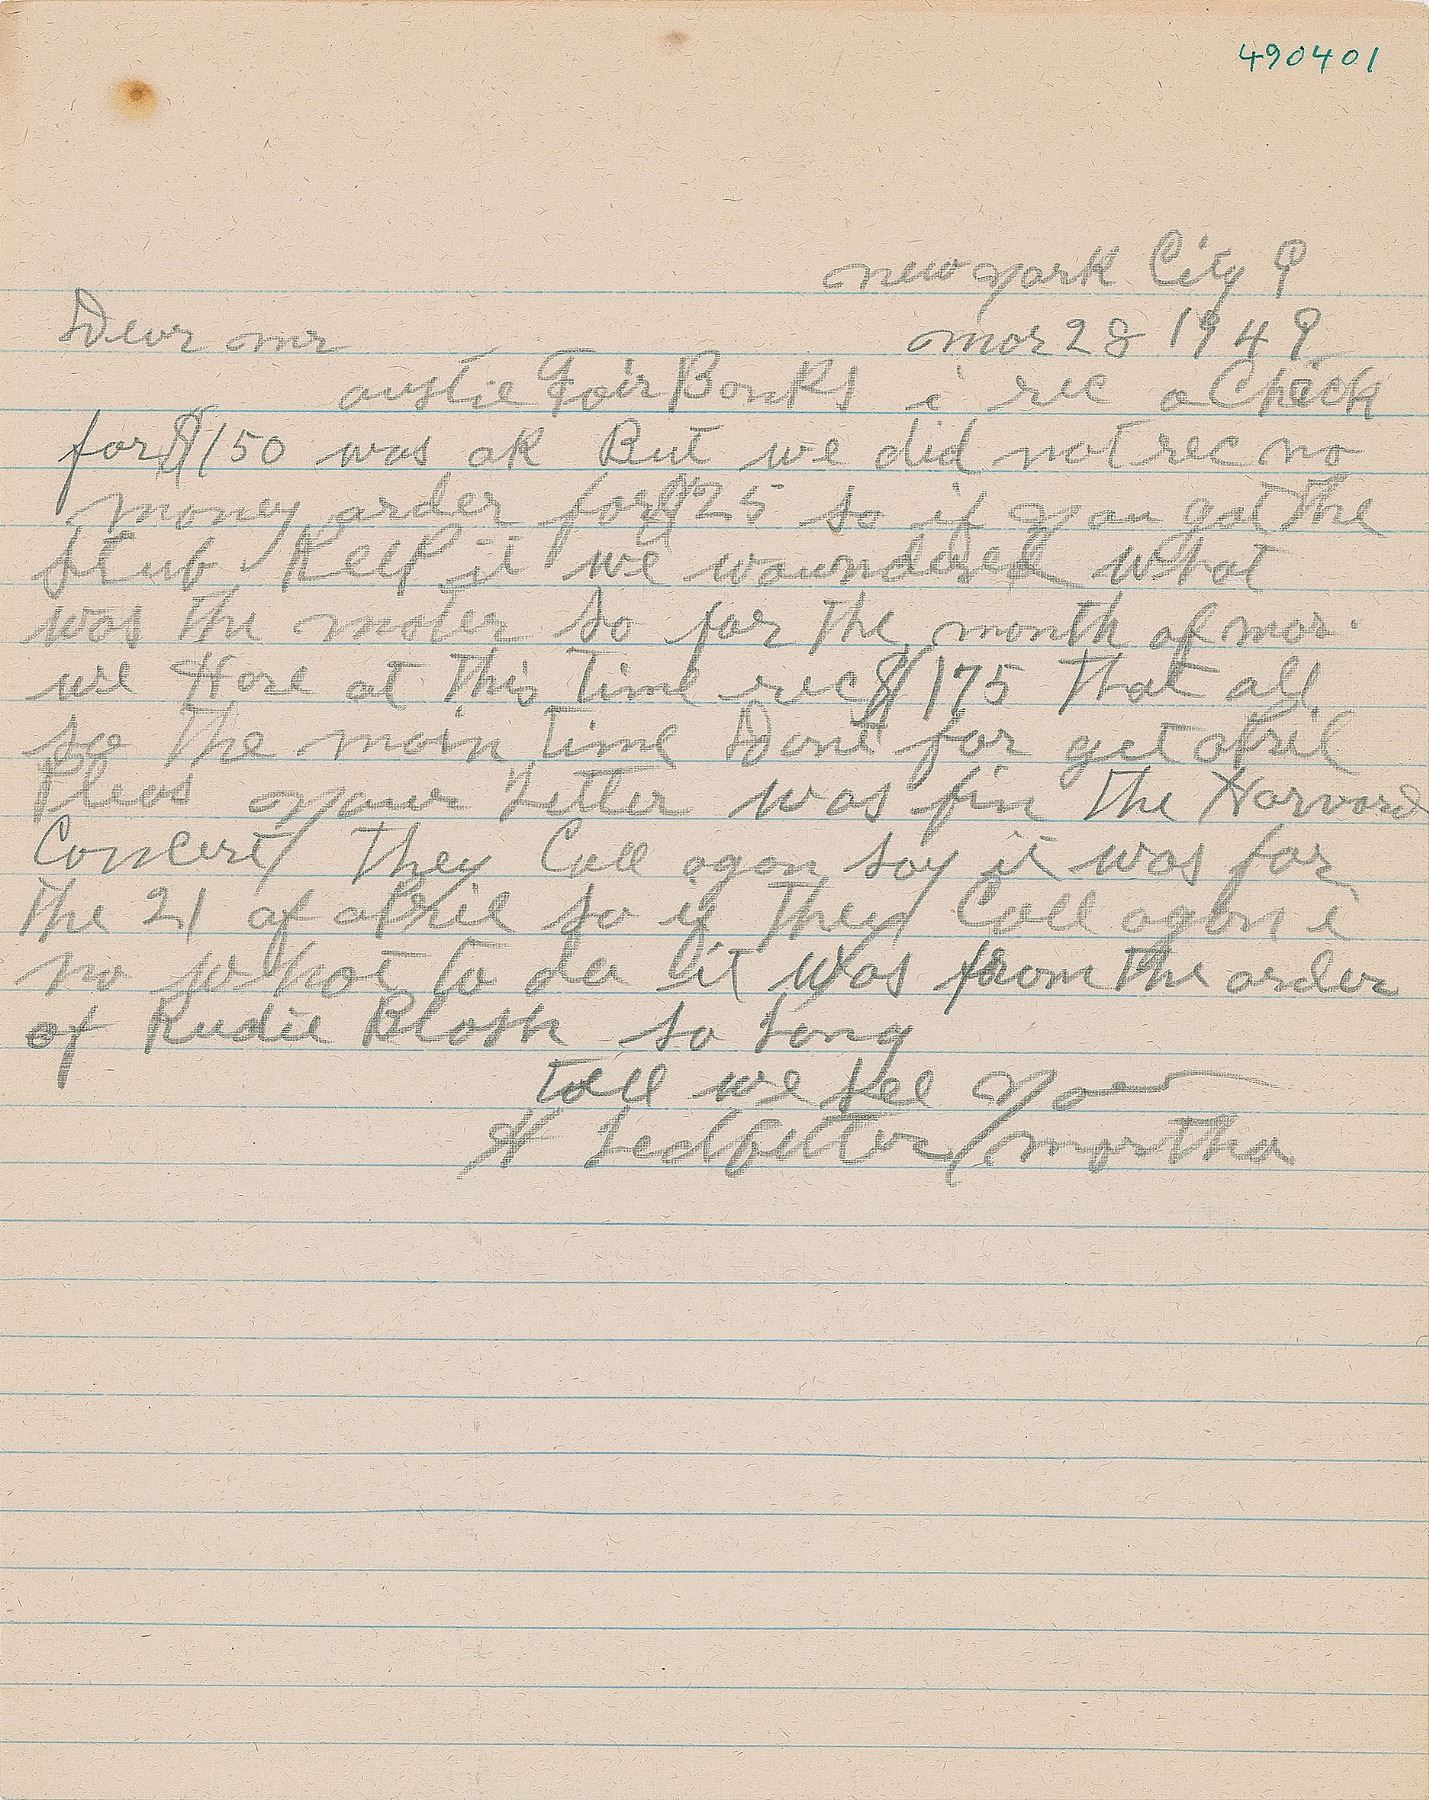 490401
new york City 9
Dear mr mar 28 1949
austie FairBanks i rec a Check
for $150 was ok But we did not rec no
money order for $25 so if you got the
stub Keep it we woundered what
was the mater so for the month of mar.
we Have at this Time rec $175 that all
so the main time Dont for get april
Pleas your Letter was fin the Harvard
Concert they Call agan say it was for
the 21 of april so if They Call agan i
no what to do it was from the order
of Rudie Blosh so Long
tell we see you
H Ledbetter/martha